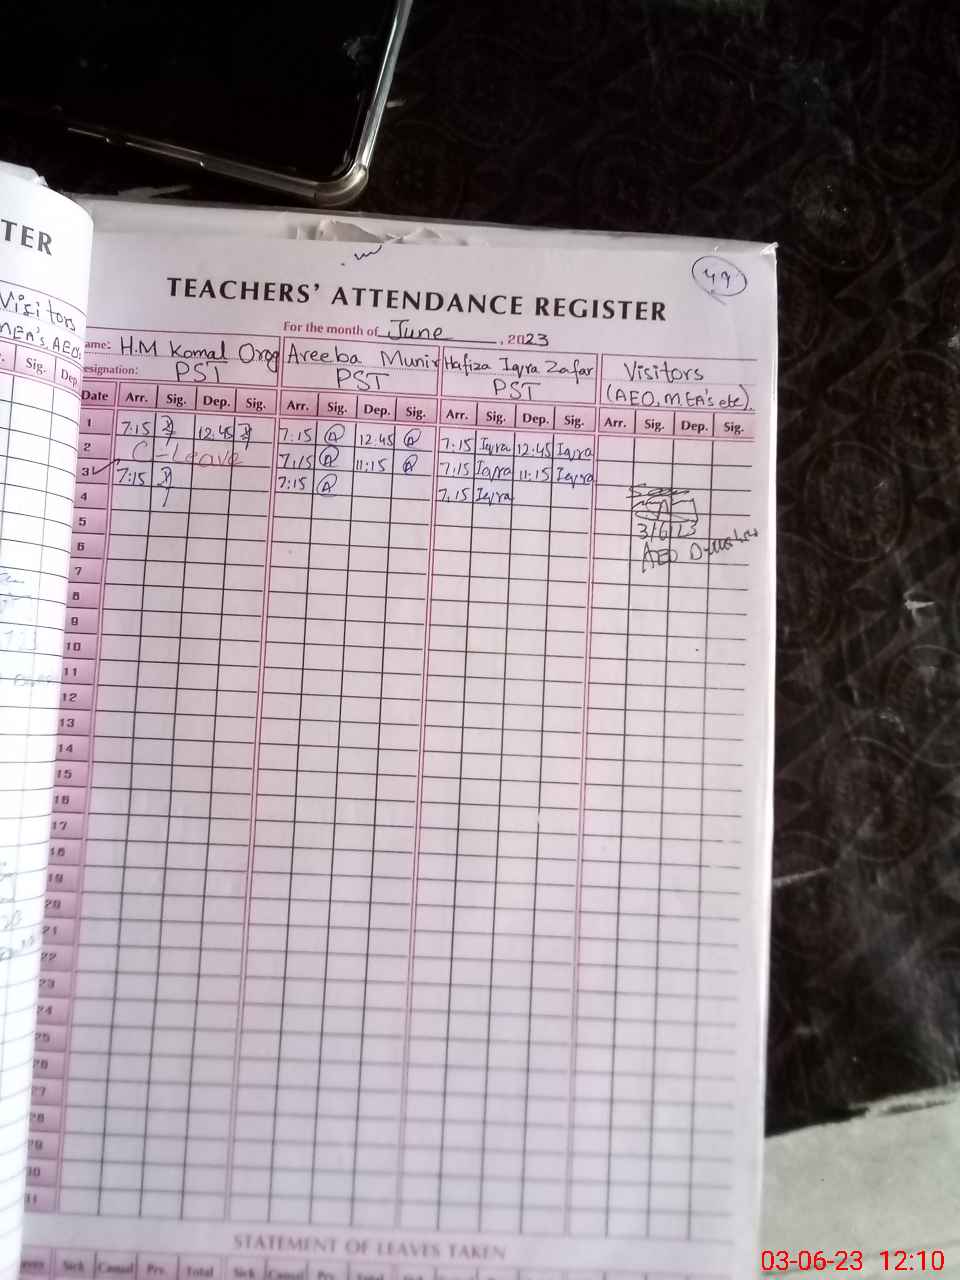 TER
Visitors
MEA's, AEO's
Sig. Dep.
49
TEACHERS' ATTENDANCE REGISTER
For the month of June, 2023
ame: H.M Komal Areeba Munir Hafiza Iqra Zafar Visitors
esignation: PST PST PST (AEO, MEA's etc).
Date Arr. Sig. Dep. Sig. Arr. Sig. Dep. Sig. Arr. Sig. Dep. Sig. Arr. Sig. Dep. Sig.
1 7:15 12:45 7:15 12:45 7:15 Iqra 12:45 Iqra
2 C-Leave 7:15 11:15 7:15 Iqra 11:15 Iqra
3 7:15 7:15 7:15 Iqra
4
5 3/6/23
6 AEO
7
8
9
10
11
12
13
14
15
16
17
18
19
20
21
22
23
24
25
26
27
28
29
30
31
STATEMENT OF LEAVES TAKEN
Sick Casual Prv. Total Sick Casual Prv. Total
03-06-23 12:10